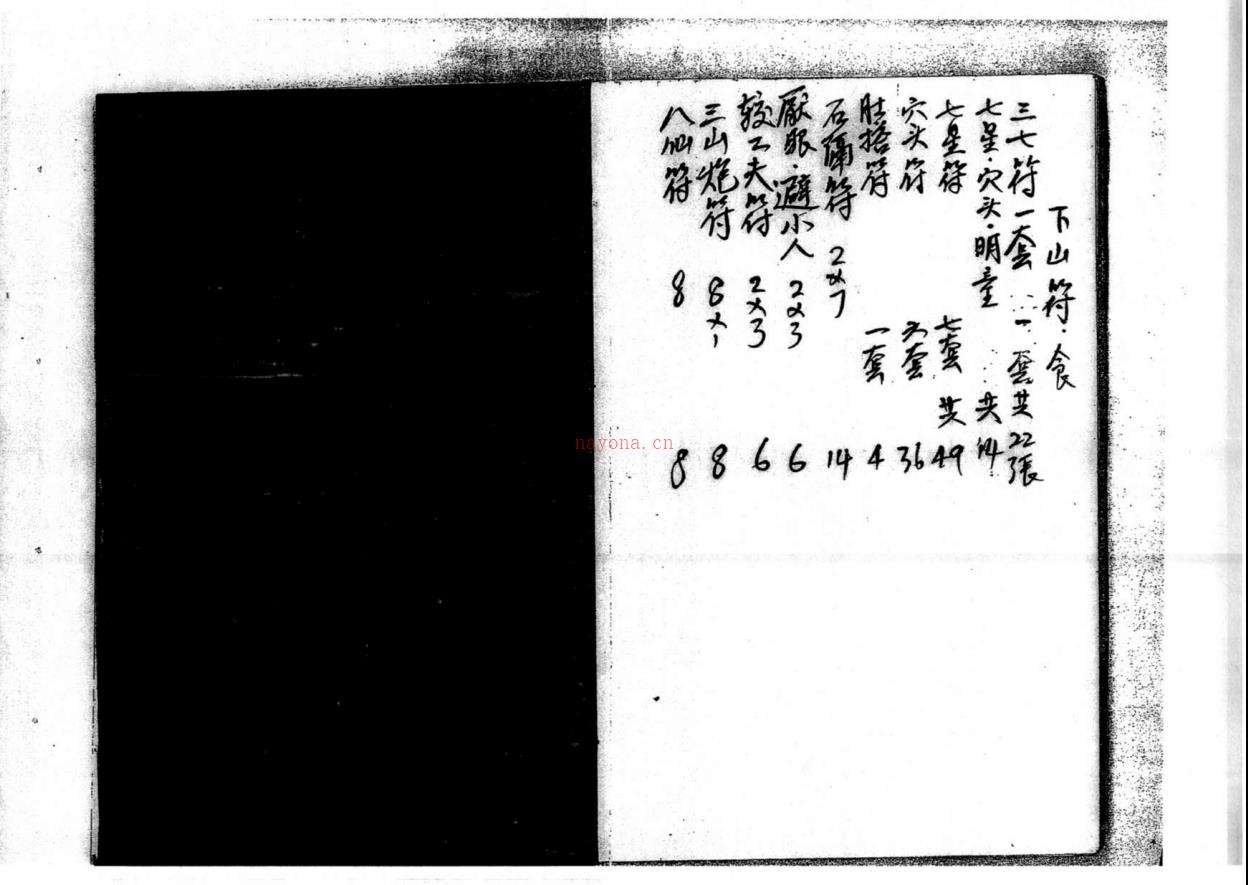 下山符·食
三七符一套 一套共22張
七星·穴头·明童 共14
七星符 七套 共49
穴头符 六套 36
肚搭符 一套 4
石隔符 2×7 14
厭眼·避小人 2×3 6
較工夫符 2×3 6
三山炮符 8×1 8
八仙符 8 8
nayona.cn